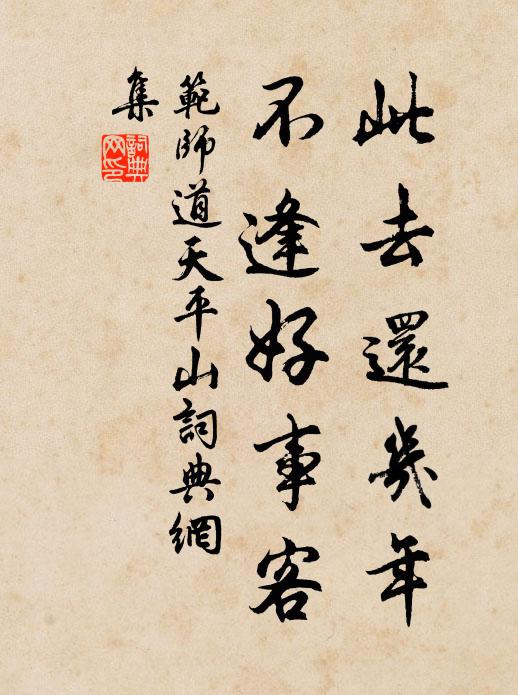 此去還幾年
不逢好事客
範師道天平山詞典網
集
詞典
网印